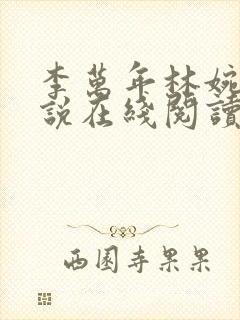 李萬年林婉
說在綫閱讀
西園寺果果